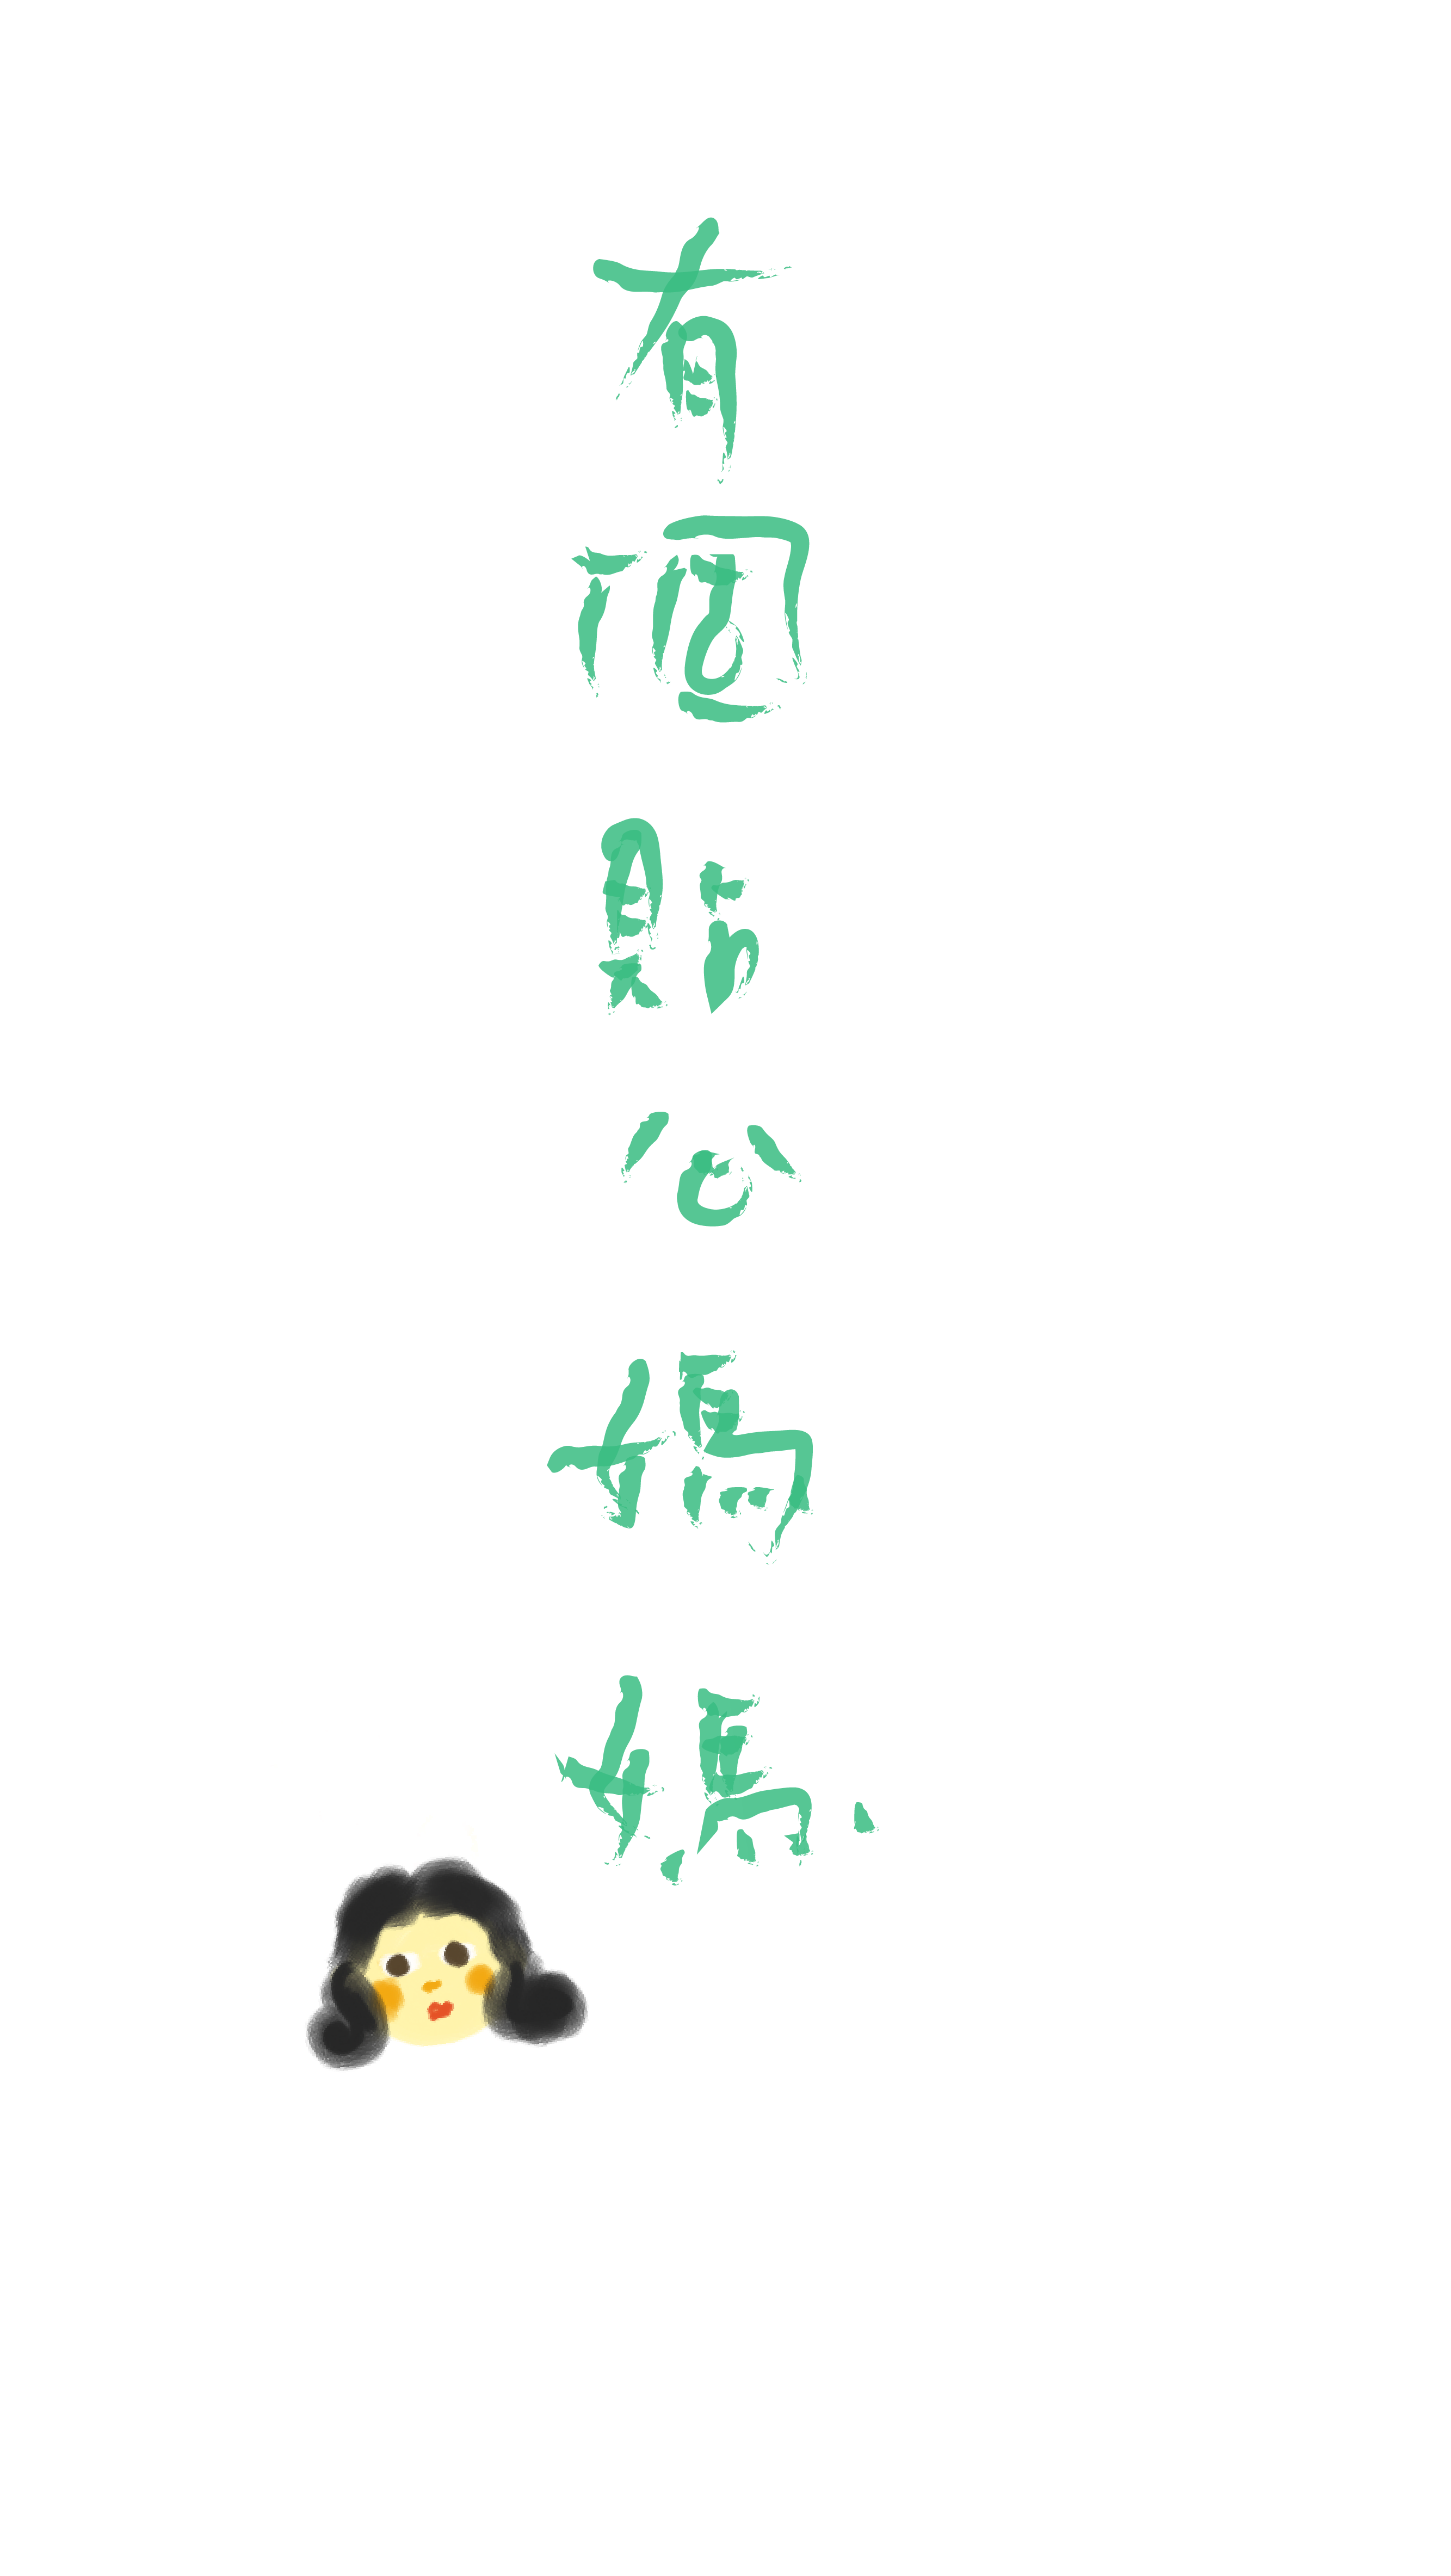 有個貼心媽媽